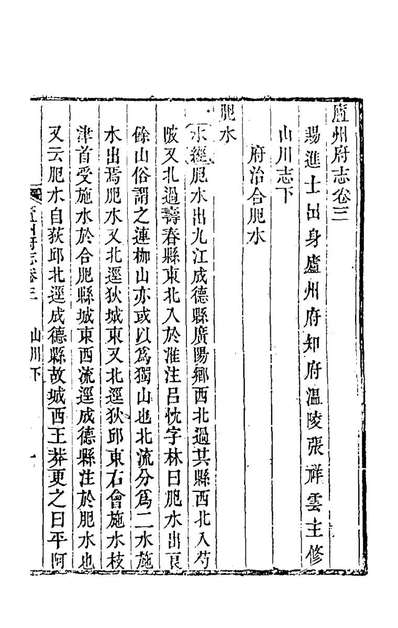 廬州府志卷三
賜進士出身廬州府知府溫陵張祥雲主修
山川志下
府治合肥水
肥水
水經肥水出九江成德縣廣陽鄉西北過其縣西北入芍
陂又北過壽春縣東北入於淮注呂忱字林曰肥水出良
餘山俗謂之連枷山亦或以為獨山也北流分為二水施
水出焉肥水又北逕狄城東又北逕狄邱東右會施水枝
津首受施水於合肥縣城東西流逕成德縣注於肥水也
又云肥水自荻邱北逕成德縣故城西王莽更之曰平阿
州府志卷三
山川下
一